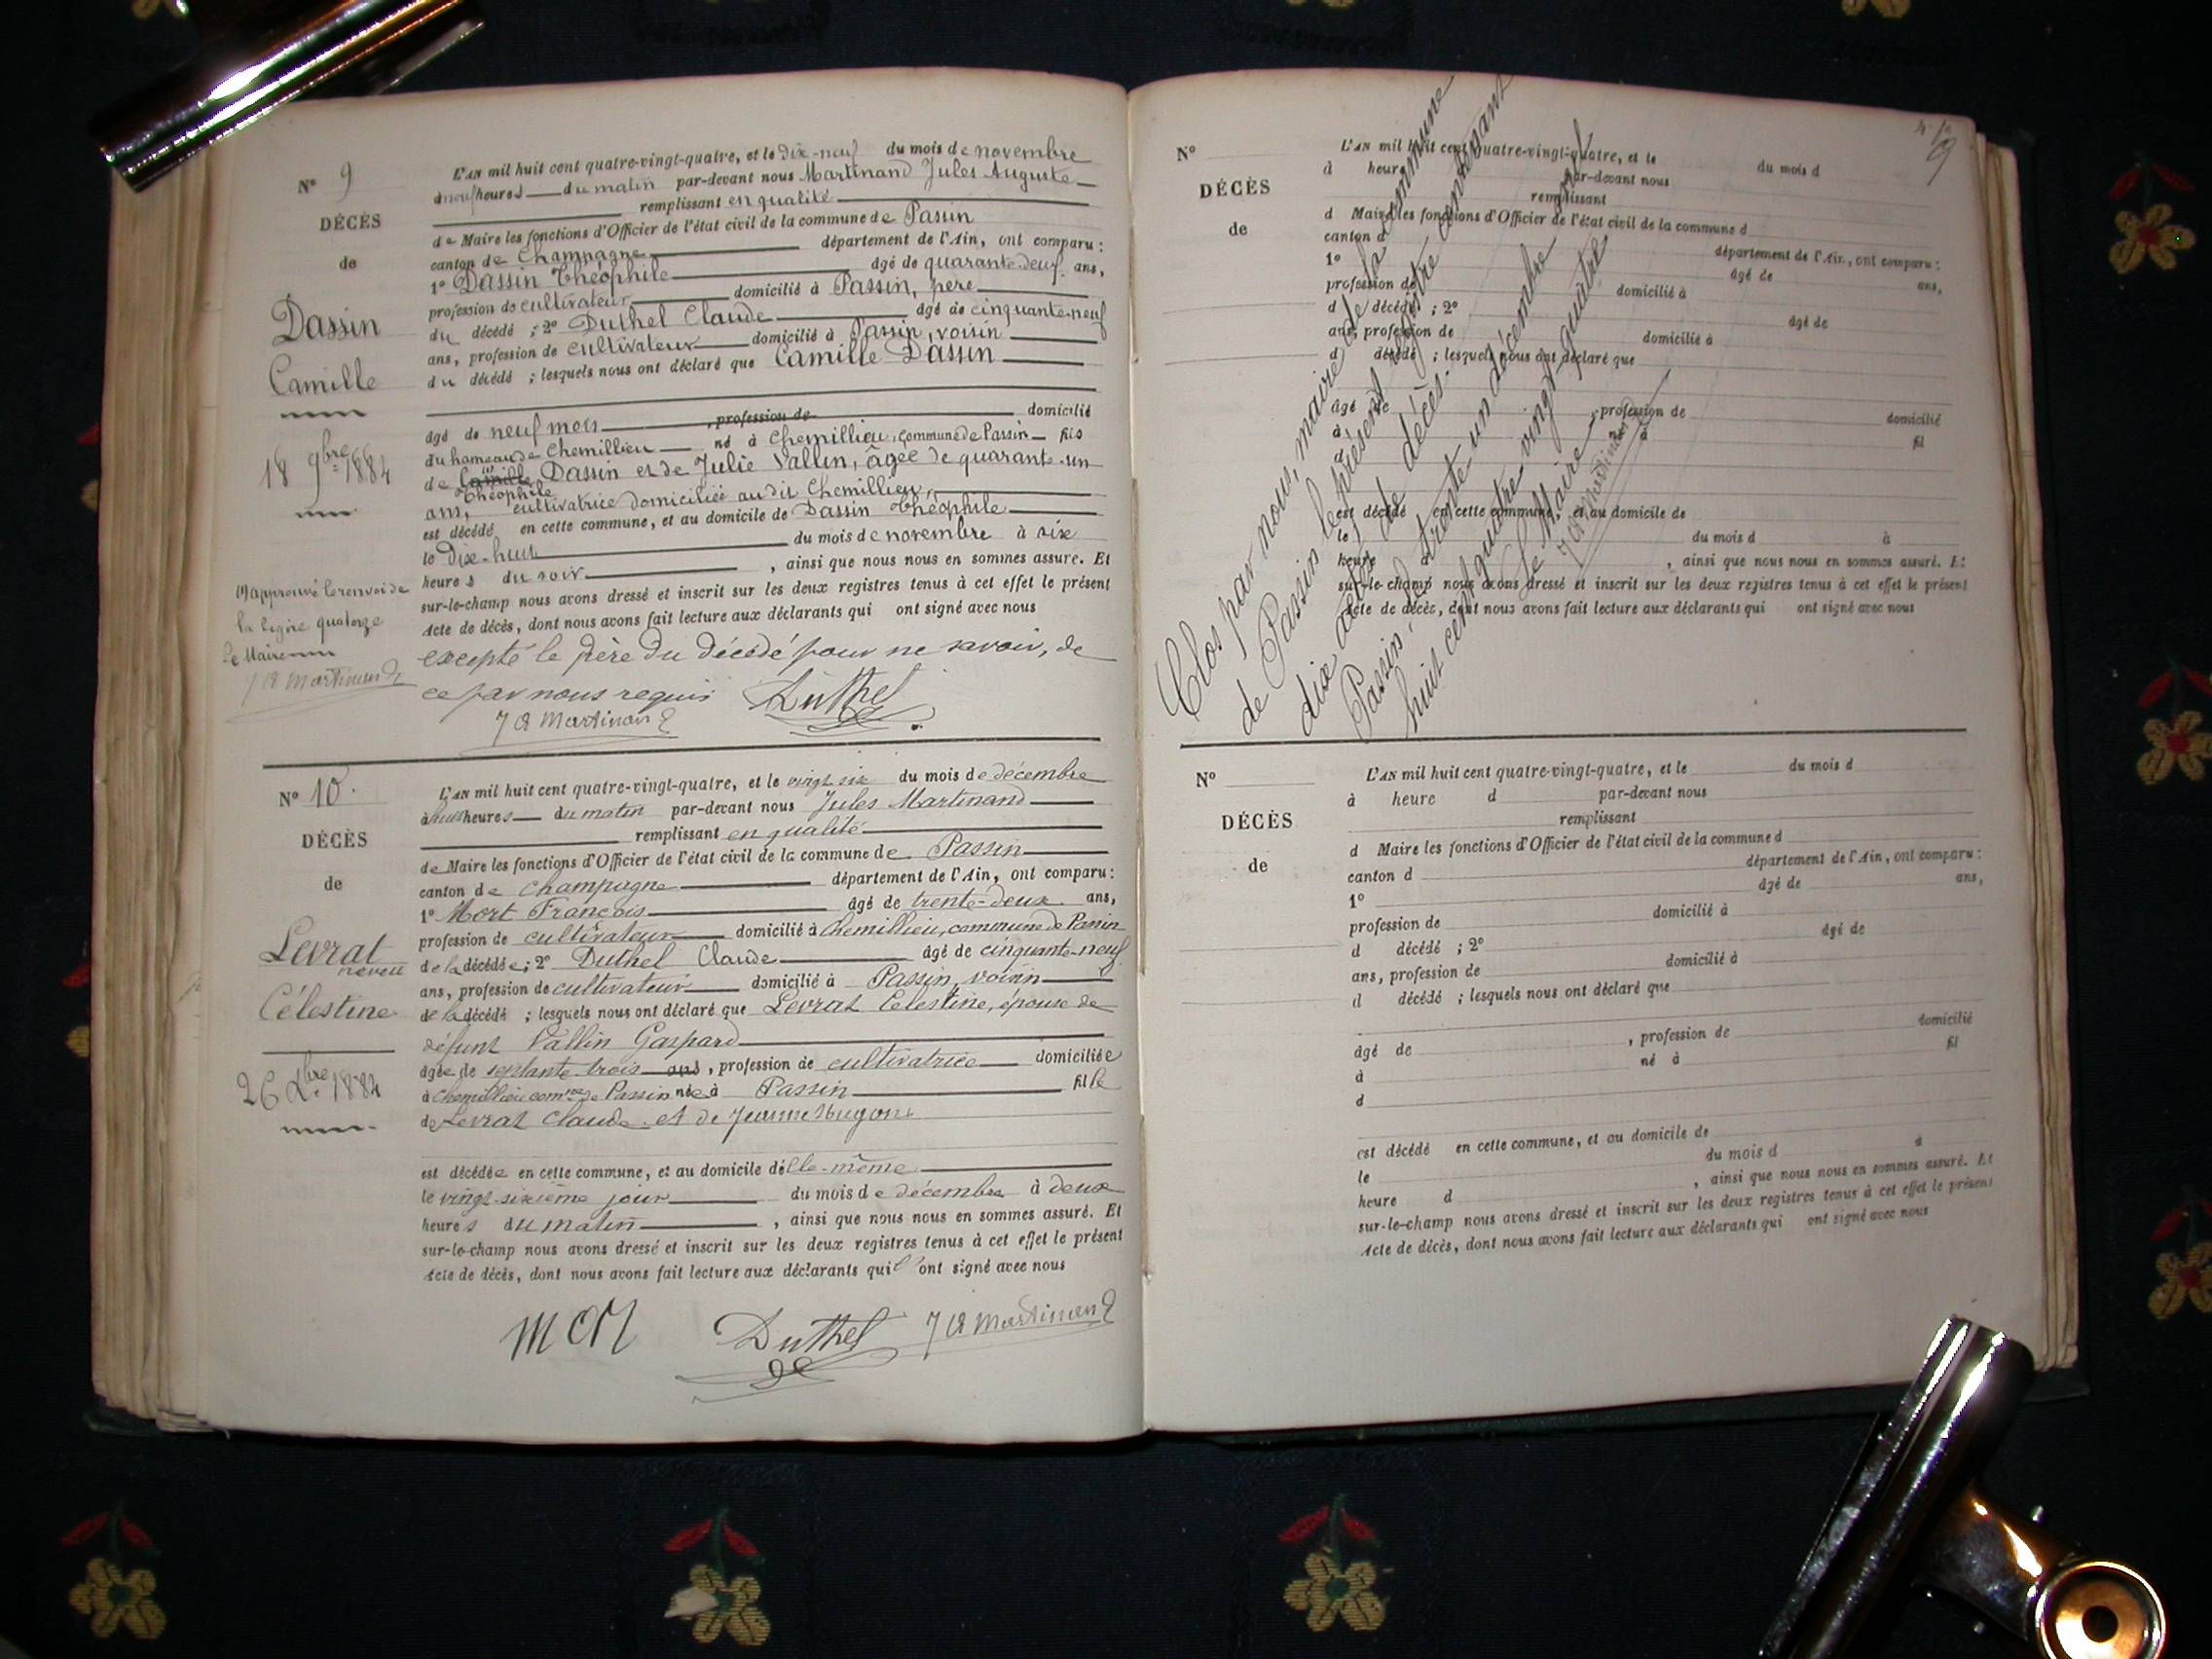 N° 9
DÉCÈS
de
Dassin
Camille
18 9bre 1884
(1) approuvé le renvoi de
la ligne quatorze
Le Maire
J A Martinand
L'AN mil huit cent quatre-vingt-quatre, et le dix-neuf du mois de novembre
à neuf heures du matin par-devant nous Martinand Jules Auguste
remplissant en qualité
de Maire les fonctions d'Officier de l'état civil de la commune de Passin
canton de Champagne département de l'Ain, ont comparu :
1° Dassin Théophile âgé de quarante-deux ans,
profession de cultivateur domicilié à Passin, père
du décédé ; 2° Duthel Claude âgé de cinquante-neuf
ans, profession de cultivateur domicilié à Passin, voisin
du décédé ; lesquels nous ont déclaré que Camille Dassin
âgé de neuf mois , profession de domicilié
du hameau de Chemillieu né à Chemillieu, commune de Passin fils
de Camille Dassin et de Julie Vallin, âgée de quarante-un
Théophile
ans, cultivatrice domiciliée au dit Chemillieu,
est décédé en cette commune, et au domicile de Dassin Théophile
le dix-huit du mois de novembre à six
heures du soir , ainsi que nous nous en sommes assuré. Et
sur-le-champ nous avons dressé et inscrit sur les deux registres tenus à cet effet le présent
Acte de décès, dont nous avons fait lecture aux déclarants qui ont signé avec nous
excepté le père du décédé pour ne savoir, de
ce par nous requis Duthel
J A Martinand
N° 10.
DÉCÈS
de
Levrat
Célestine
26 Xbre 1884
L'AN mil huit cent quatre-vingt-quatre, et le vingt six du mois de décembre
à huit heures du matin par-devant nous Jules Martinand
remplissant en qualité
de Maire les fonctions d'Officier de l'état civil de la commune de Passin
canton de Champagne département de l'Ain, ont comparu :
1° Mort François âgé de trente-deux ans,
profession de cultivateur domicilié à Chemillieu, commune de Passin
neveu de la décédée ; 2° Duthel Claude âgé de cinquante-neuf
ans, profession de cultivateur domicilié à Passin, voisin
de la décédé ; lesquels nous ont déclaré que Levrat Célestine, épouse de
défunt Vallin Gaspard
âgée de septante trois ans , profession de cultivatrice domiciliée
à Chemillieu comne de Passin née à Passin fille
de Levrat Claude et de Jeanne Hugon
est décédée en cette commune, et au domicile d'elle-même
le vingt-sixième jour du mois de décembre à deux
heures du matin , ainsi que nous nous en sommes assuré. Et
sur-le-champ nous avons dressé et inscrit sur les deux registres tenus à cet effet le présent
Acte de décès, dont nous avons fait lecture aux déclarants qui l'ont signé avec nous
Mort Duthel J A Martinand
9
N°
DÉCÈS
de
L'AN mil huit cent quatre-vingt-quatre, et le du mois d
à heure par-devant nous
remplissant
d Maire les fonctions d'Officier de l'état civil de la commune d
canton d département de l'Ain, ont comparu :
1° âgé de ans,
profession de domicilié à
d décédé ; 2° âgé de
ans, profession de domicilié à
d décédé ; lesquels nous ont déclaré que
âgé de , profession de domicilié
à né à fil
d
est décédé en cette commune, et au domicile de
le du mois d à
heure d , ainsi que nous nous en sommes assuré. Et
sur-le-champ nous avons dressé et inscrit sur les deux registres tenus à cet effet le présent
Acte de décès, dont nous avons fait lecture aux déclarants qui ont signé avec nous
Clos par nous, maire de la commune
de Passin le présent registre contenant
dix actes de décès.
Passin, le trente un décembre
huit cent quatre vingt quatre
Le Maire
J A Martinand
N°
DÉCÈS
de
L'AN mil huit cent quatre-vingt-quatre, et le du mois d
à heure d par-devant nous
remplissant
d Maire les fonctions d'Officier de l'état civil de la commune d
canton d département de l'Ain, ont comparu :
1° âgé de ans,
profession de domicilié à
d décédé ; 2° âgé de
ans, profession de domicilié à
d décédé ; lesquels nous ont déclaré que
âgé de , profession de domicilié
à né à fil
d
est décédé en cette commune, et au domicile de
le du mois d à
heure d , ainsi que nous nous en sommes assuré. Et
sur-le-champ nous avons dressé et inscrit sur les deux registres tenus à cet effet le présent
Acte de décès, dont nous avons fait lecture aux déclarants qui ont signé avec nous